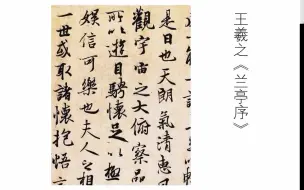 王羲之《兰亭序》
是日也天朗氣清惠
觀宇宙之大俯察品
所以遊目騁懷足以極
娛信可樂也夫人之相
一世或取諸懷抱悟